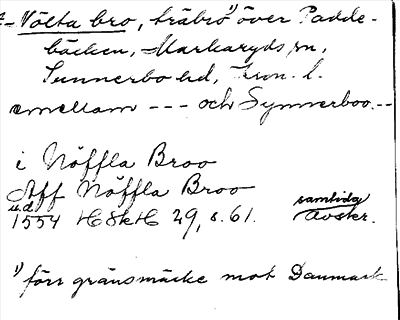 Nölta bro, träbro ¹) över Padde-
bäcken, Markaryds sn,
Sunnerbo hd, Kron. l.
emellam --- och Synnerboo.--
i Nöffla Broo
Aff Nöffla Broo
u.d. samtida
1554 HSkH 29, s. 61. avskr.
¹) förr gränsmärke mot Danmark